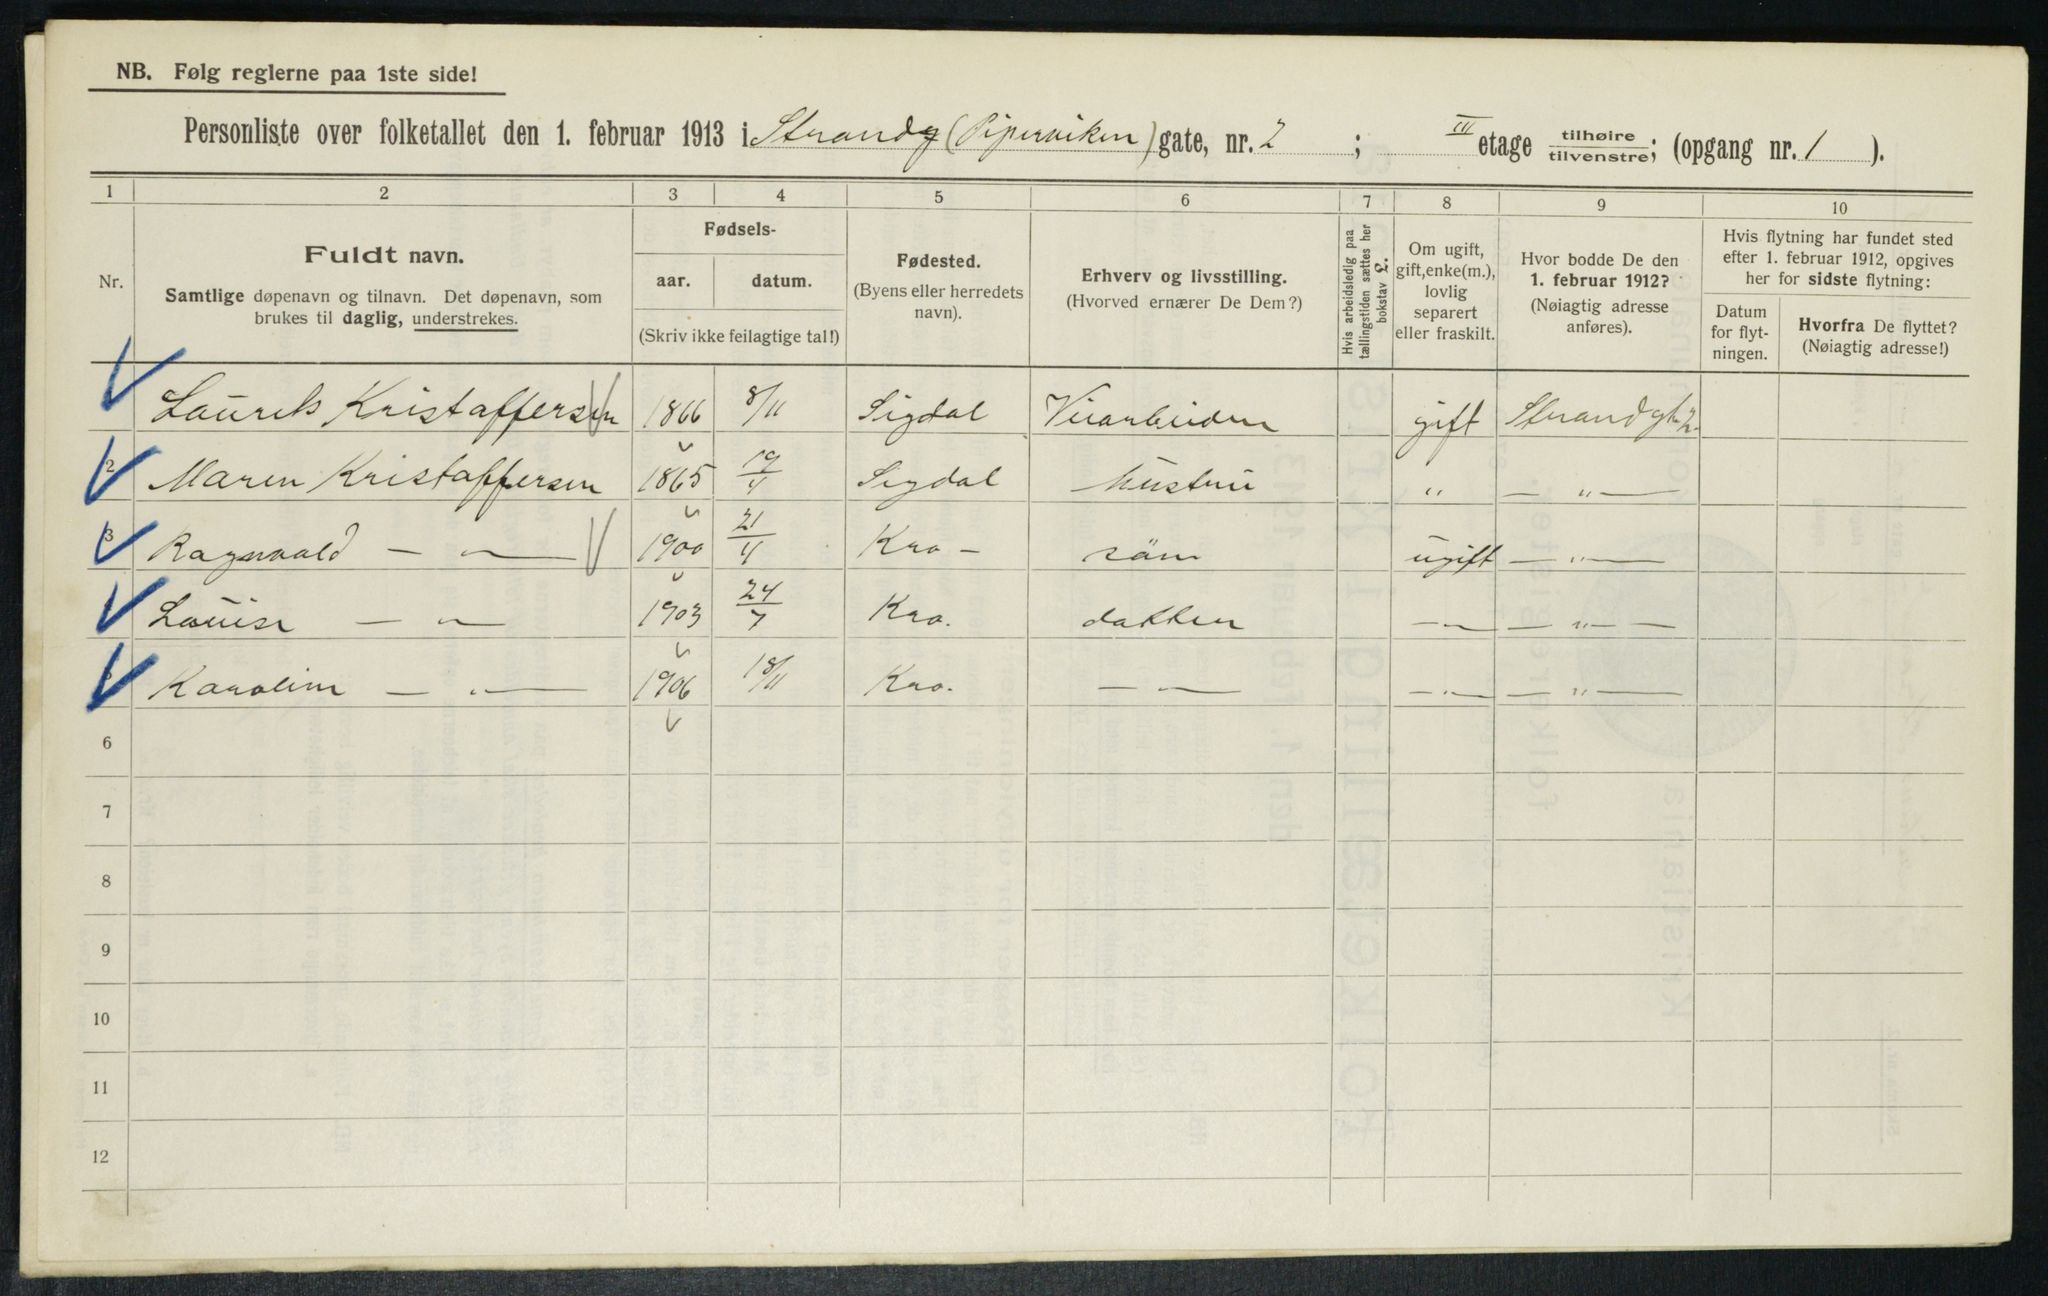 NB. Følg reglerne paa 1ste side!
Personliste over folketallet den 1. februar 1913 i Strandg (Piperviken) gate, nr. 2 ; III etage tilhøire tilvenstre; (opgang nr. 1 ).
1 2 3 4 5 6 7 8 9 10
Nr.
Fuldt navn.
Samtlige døpenavn og tilnavn. Det døpenavn, som
brukes til daglig, understrekes.
Fødsels-
aar. datum.
(Skriv ikke feilagtige tal!)
Fødested.
(Byens eller herredets
navn).
Erhverv og livsstilling.
(Hvorved ernærer De Dem?)
Hvis arbeidsledig paa
tællingstiden sættes her
bokstav £.
Om ugift,
gift, enke(m.),
lovlig
separert
eller fraskilt.
Hvor bodde De den
1. februar 1912?
(Nøiagtig adresse
anføres).
Hvis flytning har fundet sted
efter 1. februar 1912, opgives
her for sidste flytning:
Datum
for flyt-
ningen.
Hvorfra De flyttet?
(Nøiagtig adresse!)
Laurits Kristaffersen 1866 8/11 Sigdal gift Strandgt 2.
2 Maren Kristaffersen 1865 19/4 Sigdal hustru " — " —
3 Ragnvald — " — 1900 21/4 Kra — søn ugift — " —
Louise — " — 1903 24/7 Kra. datter — " — — " —
5 Karoline — " — 1906 18/11 Kra. — — — " — — " —
6
7
8
9
10
11
12